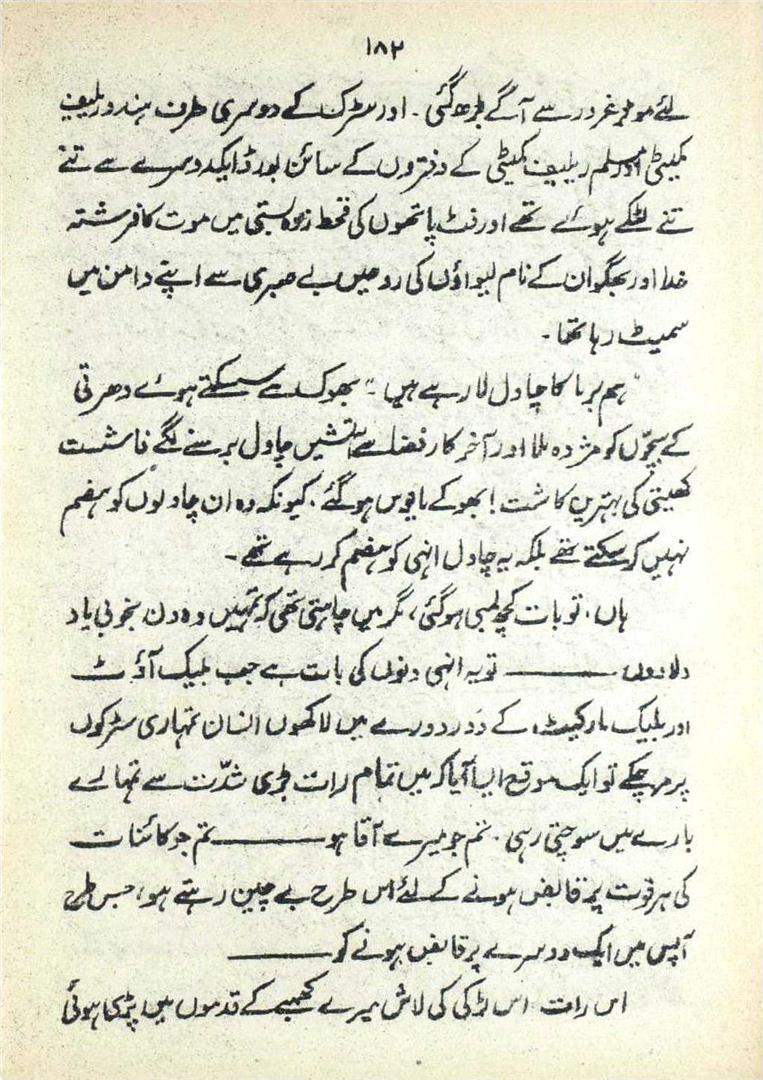 ۱۸۲
لئے موٹر غرور سے آگے بڑھ گئی۔ اور سٹرک کے دوسری طرف ہندو ریلیف
کمیٹی اور مسلم ریلیف کمیٹی کے دفتروں کے سائن بورڈ ایکدوسرے سے تنے
تنے لٹکے ہوئے تھے اور فٹ پاتھوں کی قحط زدہ بستی میں موت کا فرشتہ
خدا اور بھگوان کے نام لیواؤں کی روحیں بے صبری سے اپنے دامن میں
سمیٹ رہا تھا۔
"ہم برما کا چاول لا رہے ہیں"۔ بھوک سے سسکتے ہوئے دھرتی
کے بچّوں کو مژدہ ملا اور آخر کار فضا سے آتشیں چاول برسنے لگے فاشست
کھیتی کی بہترین کاشت! بھوکے مایوس ہو گئے۔ کیونکہ وہ ان چاولوں کو ہضم
نہیں کر سکتے تھے بلکہ یہ چاول انہی کو ہضم کر رہے تھے۔
ہاں۔ تو بات کچھ لمبی ہو گئی، مگر میں چاہتی تھی کہ تمہیں وہ دن بخوبی یاد
دلا دوں ——— تو یہ انہی دنوں کی بات ہے جب بلیک آؤٹ
اور بلیک مارکیٹ کے دَور دورے میں لاکھوں انسان تمہاری سٹرکوں
پر مر چکے تو ایک موقع ایسا آیا کہ میں تمام رات بڑی شدّت سے تمہارے
بارے میں سوچتی رہی۔ تم جو میرے آقا ہو ——— تم جو کائنات
کی ہر قوت پر قابض ہونے کے لئے اس طرح بے چین رہتے ہو، جس طرح
آپس میں ایک دوسرے پر قابض ہونے کو ———
اس رات اس لڑکی کی لاش میرے کھمبے کے قدموں میں پڑی ہوئی